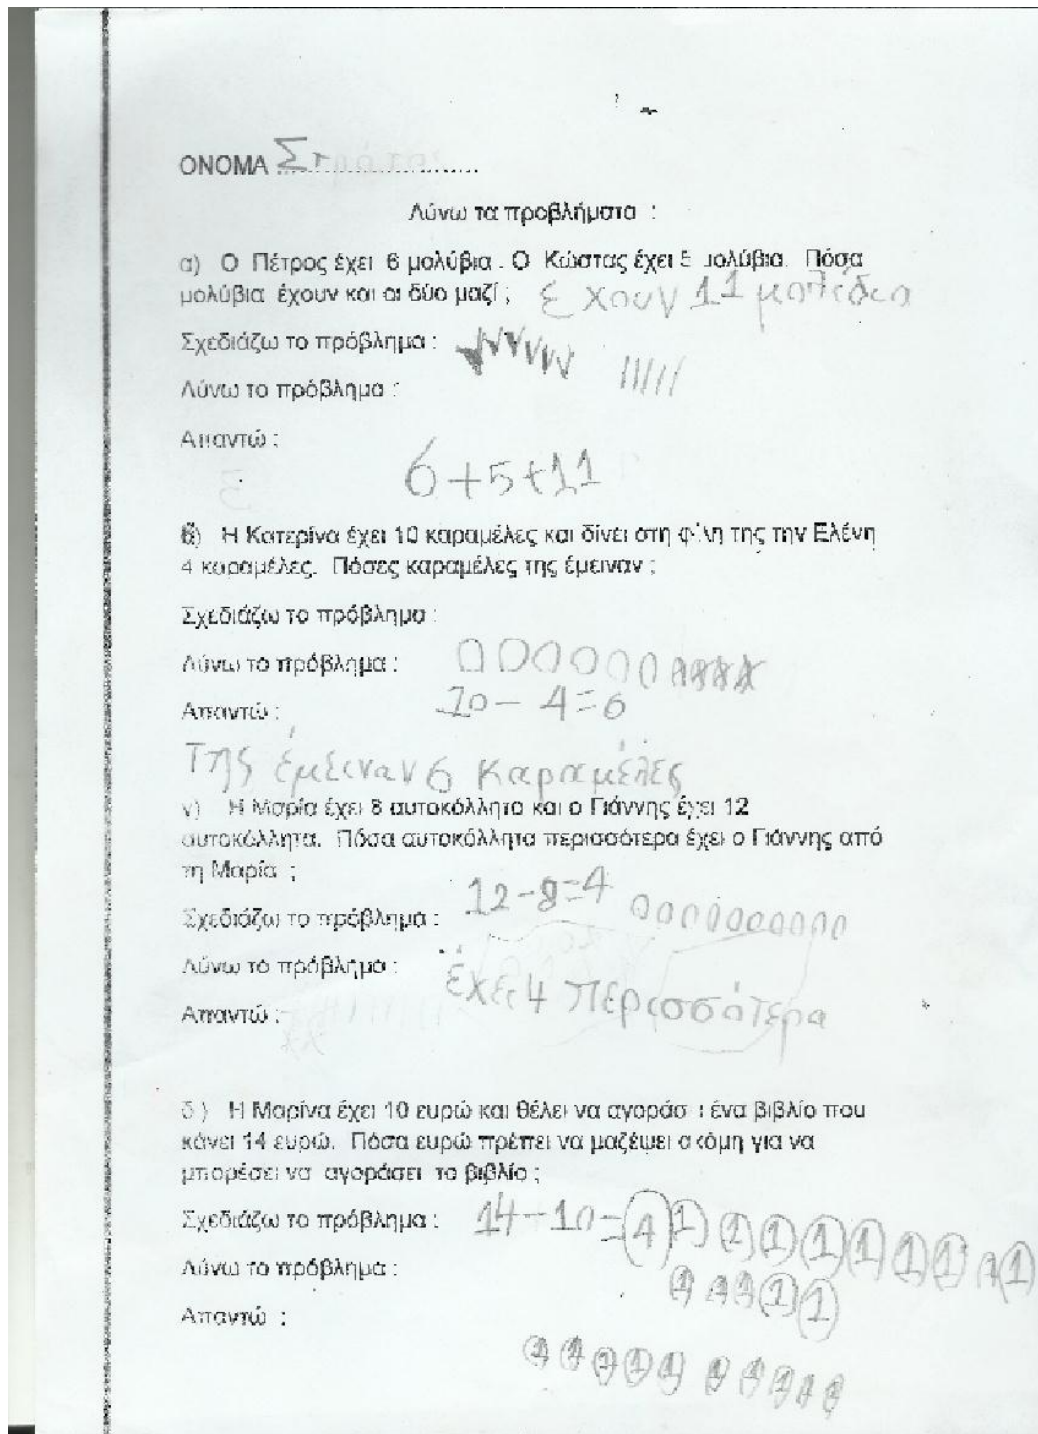 ΟΝΟΜΑ Στ
Λύνω τα προβλήματα :
α) Ο Πέτρος έχει 6 μολύβια . Ο Κώστας έχει 5 μολύβια. Πόσα
μολύβια έχουν και οι δύο μαζί ; έχουν 11
Σχεδιάζω το πρόβλημα :
Λύνω το πρόβλημα :
Απαντώ :
6+5+11
β) Η Κατερίνα έχει 10 καραμέλες και δίνει στη φίλη της την Ελένη
4 καραμέλες. Πόσες καραμέλες της έμειναν ;
Σχεδιάζω το πρόβλημα :
Λύνω το πρόβλημα :
Απαντώ : 10-4=6
Της έμειναν 6 καραμέλες
γ) Η Μαρία έχει 8 αυτοκόλλητα και ο Γιάννης έχει 12
αυτοκόλλητα. Πόσα αυτοκόλλητα περισσότερα έχει ο Γιάννης από
τη Μαρία ;
Σχεδιάζω το πρόβλημα : 12-8=4
Λύνω το πρόβλημα : έχει 4 περισσότερα
Απαντώ :
δ ) Η Μαρίνα έχει 10 ευρώ και θέλει να αγοράσει ένα βιβλίο που
κάνει 14 ευρώ. Πόσα ευρώ πρέπει να μαζέψει ακόμη για να
μπορέσει να αγοράσει το βιβλίο ;
Σχεδιάζω το πρόβλημα : 14-10=4 1 1 1 1 1 1 1 1 1
Λύνω το πρόβλημα : 1 1 1 1 1
Απαντώ :
1 1 1 1 1 1 1 1 1 1